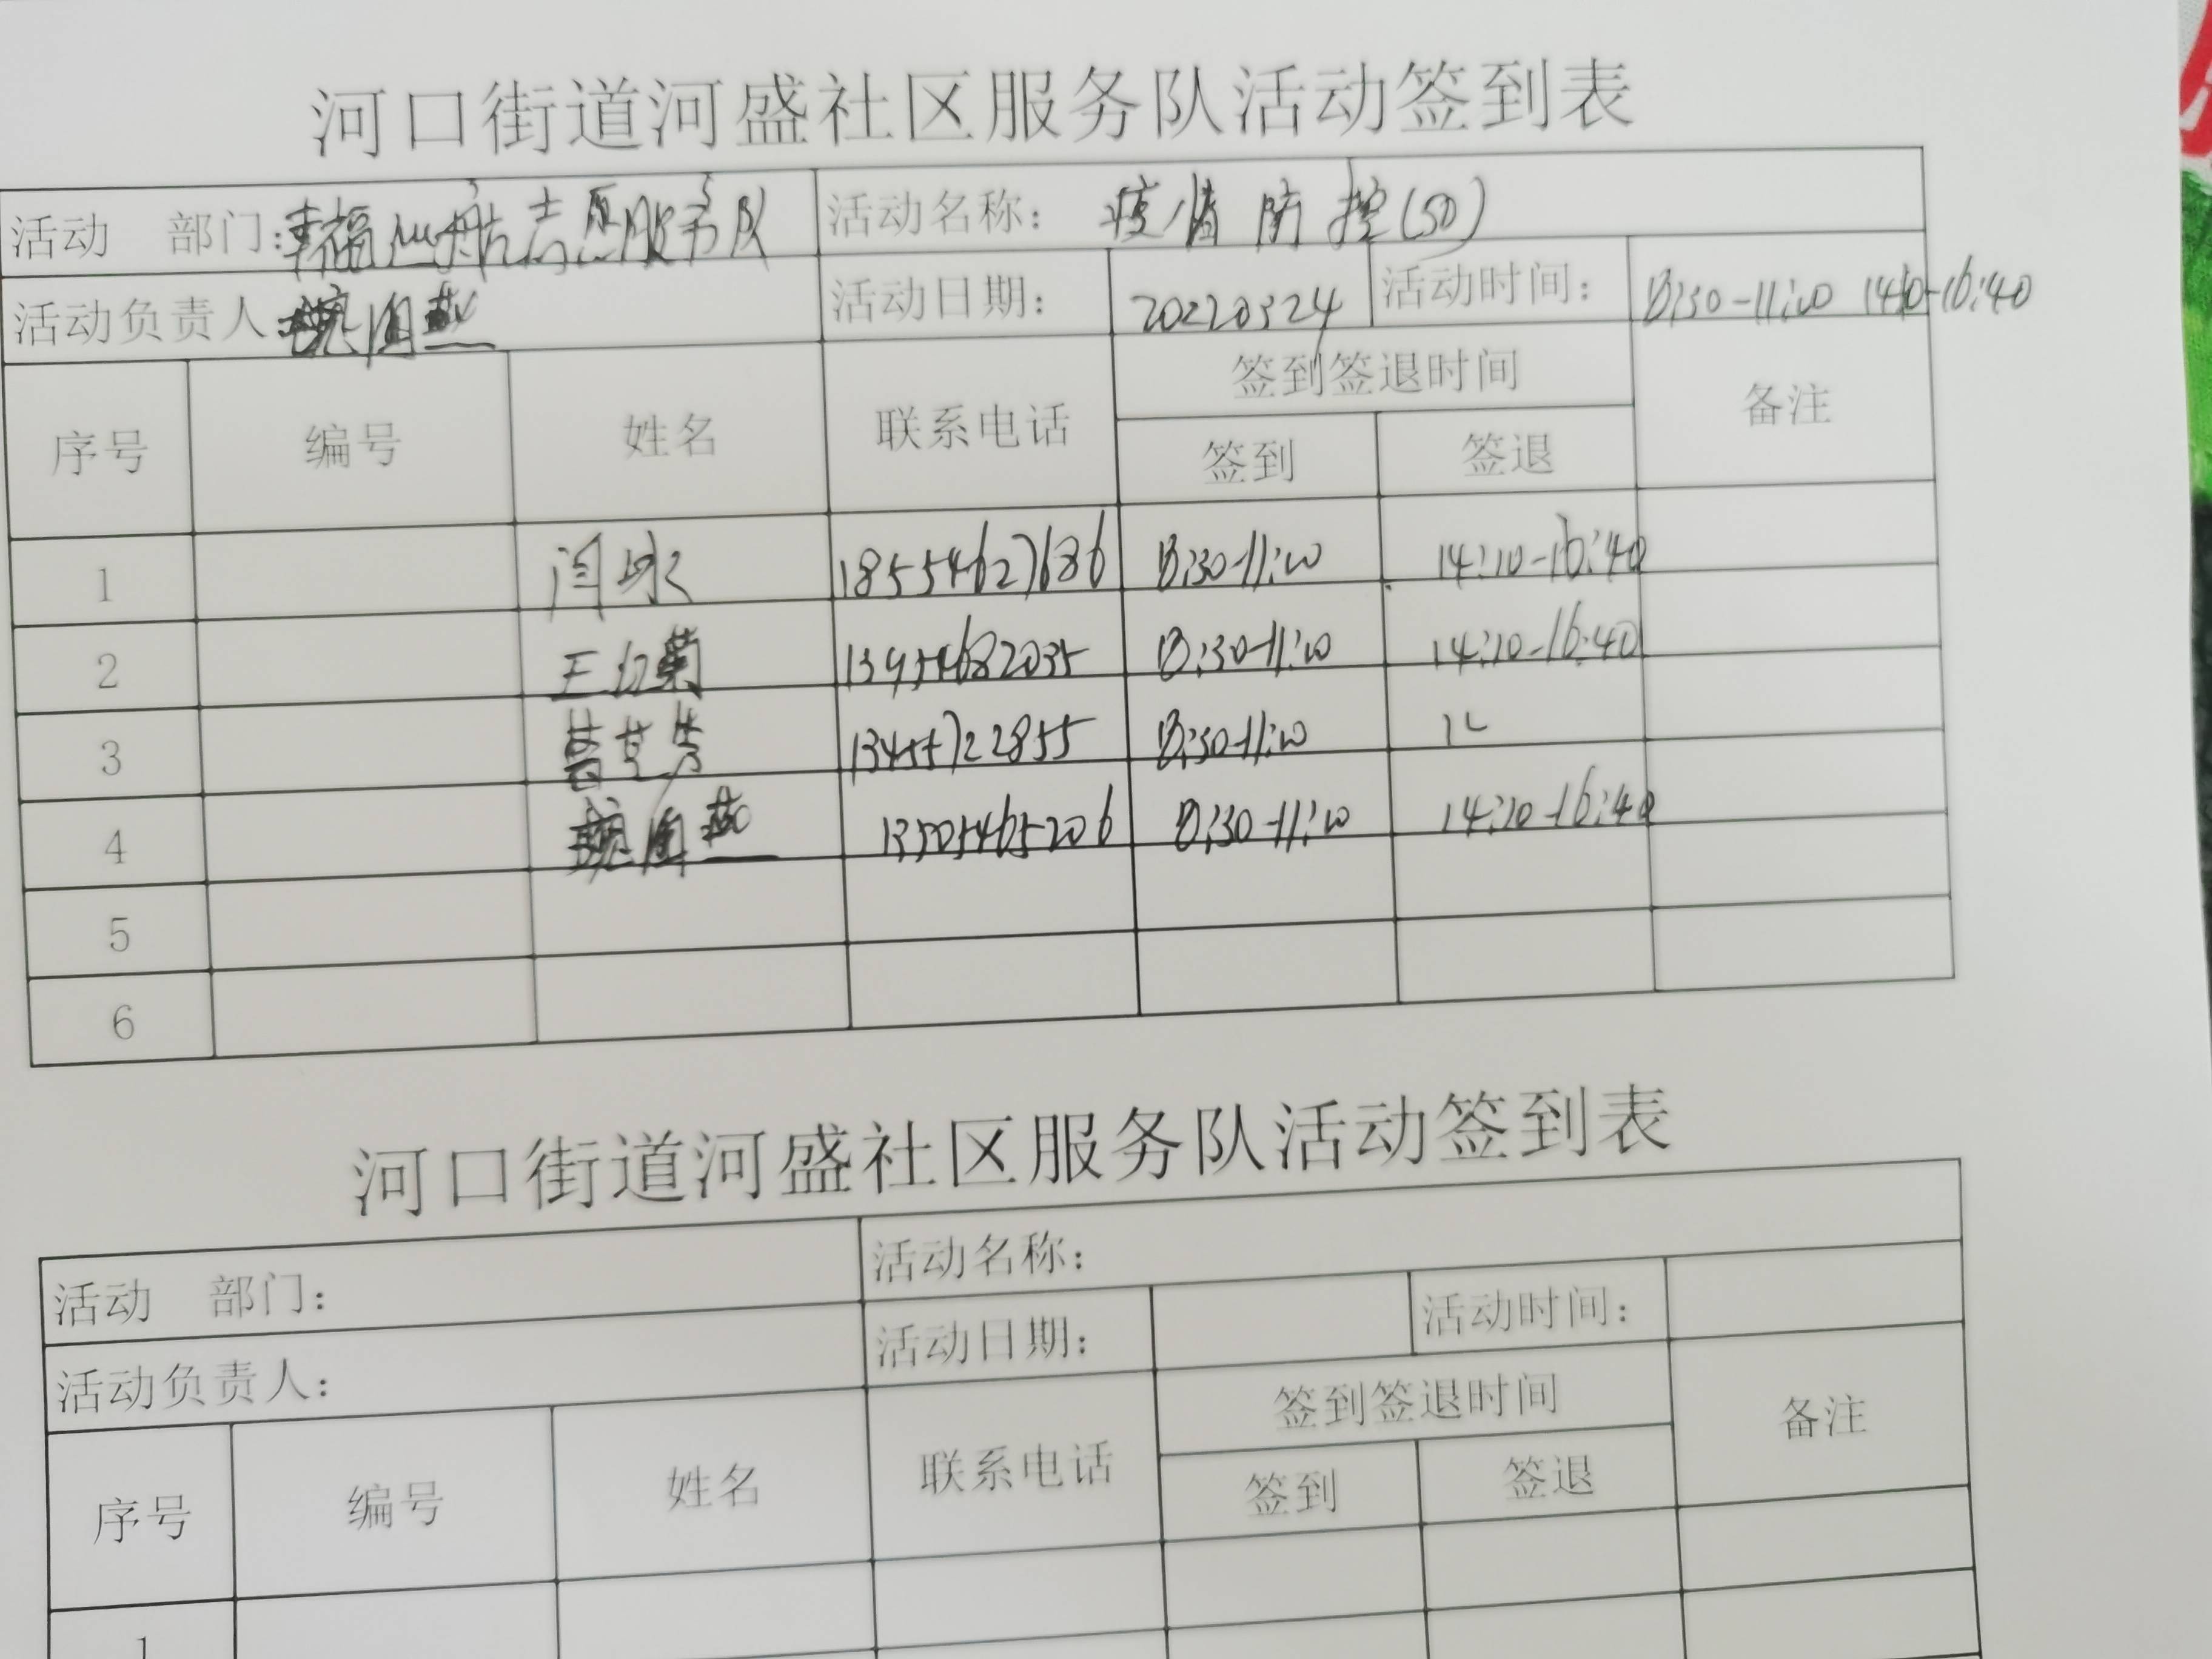 河口街道河盛社区服务队活动签到表
活动 部门: 幸福 航志愿服务队 活动名称: 疫情防控(50)
活动负责人: 燕 活动日期: 20220324 活动时间: 8:30-11:10 14:10-16:40
序号 编号 姓名 联系电话 签到签退时间 备注
签到 签退
1 闫冰 18554627686 8:30-11:10 14:10-16:40
2 王红菊 13954682035 8:30-11:10 14:10-16:40
3 13455722855 8:30-11:10
4 燕 13505465206 8:30-11:10 14:10-16:40
5
6
河口街道河盛社区服务队活动签到表
活动 部门: 活动名称:
活动负责人: 活动日期: 活动时间:
序号 编号 姓名 联系电话 签到签退时间 备注
签到 签退
1